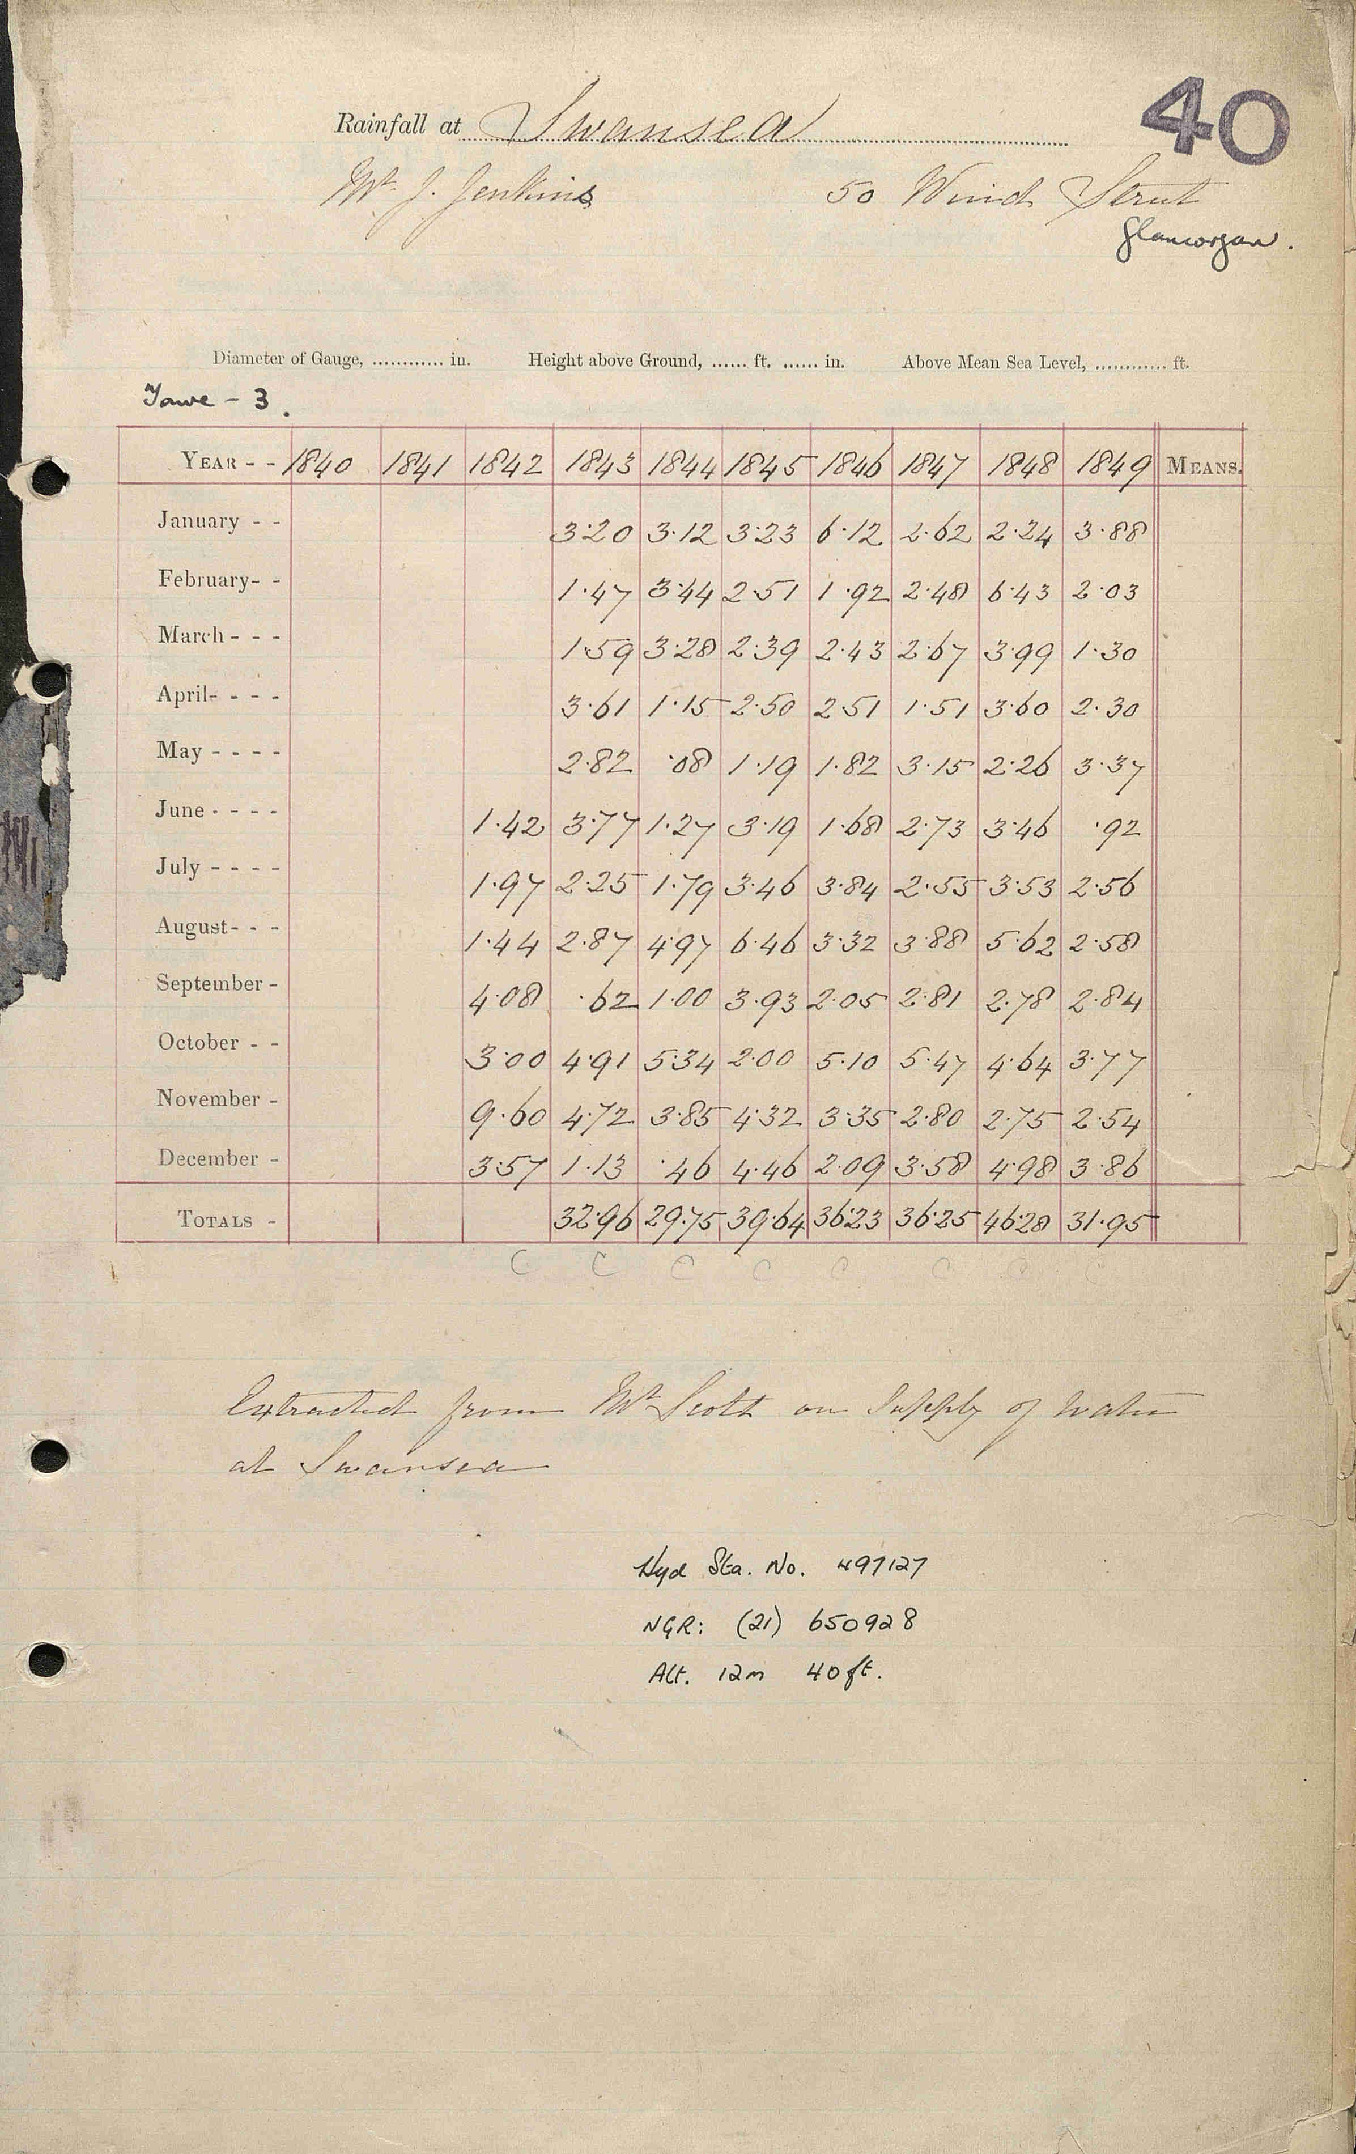 40
Rainfall at Swansea
Mr. J. Jenkins 50 Wind Street
Glamorgan.
Diameter of Gauge, ............ in. Height above Ground, ...... ft. ...... in. Above Mean Sea Level, ............ ft.
Tawe - 3.
YEAR - - 1840 1841 1842 1843 1844 1845 1846 1847 1848 1849 MEANS.
January - - 3.20 3.12 3.23 6.12 2.62 2.24 3.88
February - - 1.47 3.44 2.51 1.92 2.48 6.43 2.03
March - - - 1.59 3.28 2.39 2.43 2.67 3.99 1.30
April - - - - 3.61 1.15 2.50 2.51 1.51 3.60 2.30
May - - - - 2.82 .08 1.19 1.82 3.15 2.26 3.37
June - - - - 1.42 3.77 1.27 3.19 1.68 2.73 3.46 .92
July - - - - 1.97 2.25 1.79 3.46 3.84 2.55 3.53 2.56
August - - - 1.44 2.87 4.97 6.46 3.32 3.88 5.62 2.58
September - 4.08 .62 1.00 3.93 2.05 2.81 2.78 2.84
October - - 3.00 4.91 5.34 2.00 5.10 5.47 4.64 3.77
November - 9.60 4.72 3.85 4.32 3.35 2.80 2.75 2.54
December - 3.57 1.13 .46 4.46 2.09 3.58 4.98 3.86
TOTALS - 32.96 29.75 39.64 36.23 36.25 46.28 31.95
C C C C C C C C
Extracted from Mr Scott on Supply of water
at Swansea
Hyd Sta. No. 497127
NGR: (21) 650928
Alt. 12m 40ft.